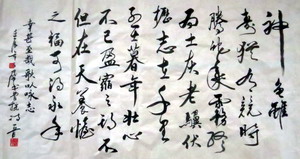 神龜雖
壽猶有竟時
騰蛇乘霧終
為土灰老驥伏
櫪志在千里
烈士暮年壯心
不已盈縮之期不
但在天養怡
之福可得永年
幸甚至哉歌以詠志